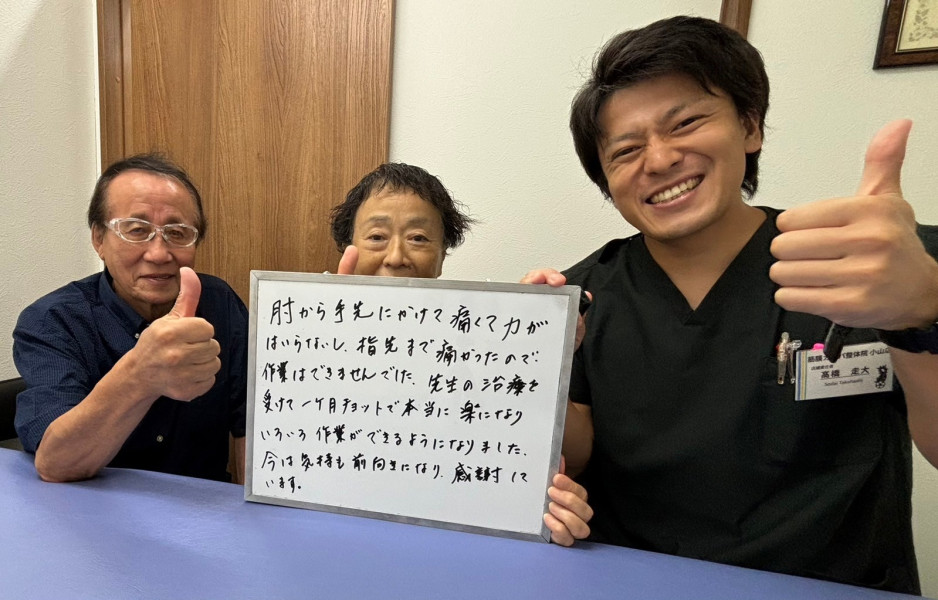 肘から手先にかけて痛くて力が
はいらないし、指先まで痛かったので
作業はできませんでした、先生の治療を
受けて一ヶ月チョットで本当に楽になり
いろいろ作業ができるようになりました、
今は気持も前向きになり、感謝して
います。
整体院 小山
高橋 走大